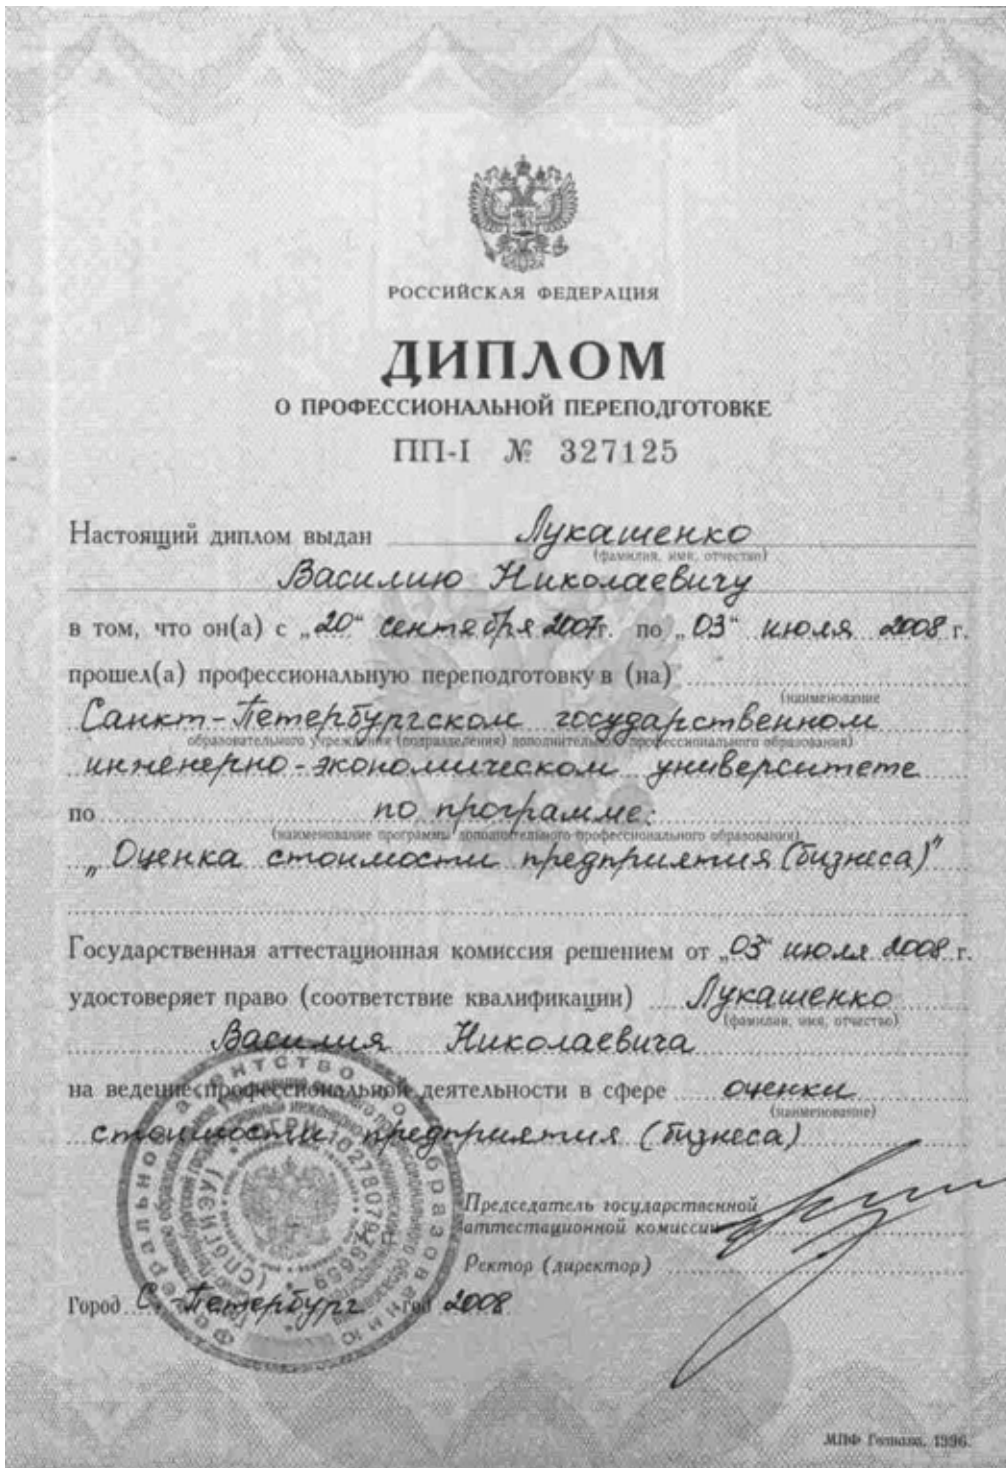 РОССИЙСКАЯ ФЕДЕРАЦИЯ
ДИПЛОМ
О ПРОФЕССИОНАЛЬНОЙ ПЕРЕПОДГОТОВКЕ
ПП-I № 327125
Настоящий диплом выдан Лукашенко
(фамилия, имя, отчество)
Василию Николаевичу
в том, что он(а) с „20“ сентября 2007г. по „03“ июля 2008 г.
прошел(а) профессиональную переподготовку в (на)
(наименование
Санкт-Петербургском государственном
образовательного учреждения (подразделения) дополнительного профессионального образования)
инженерно-экономическом университете
по по программе:
(наименование программы дополнительного профессионального образования)
„Оценка стоимости предприятия (бизнеса)"
Государственная аттестационная комиссия решением от „03“ июля 2008 г.
удостоверяет право (соответствие квалификации) Лукашенко
(фамилия, имя, отчество)
Василия Николаевича
на ведение профессиональной деятельности в сфере оценки
(наименование)
стоимости предприятия (бизнеса)
Председатель государственной
аттестационной комиссии
Ректор (директор)
Город С.-Петербург год 2008
Федеральное агентство по образованию
(СПбГИЭУ)
МПФ Гознака. 1996.